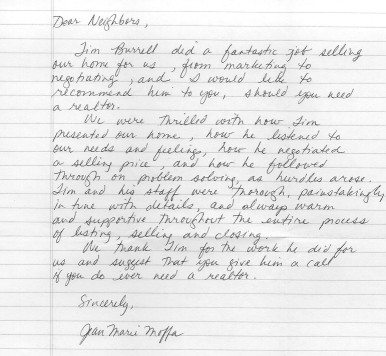 Dear Neighbors,
Jim Burrell did a fantastic job selling
our home for us, from marketing to
negotiating, and I would like to
recommend him to you, should you need
a realtor.
We were thrilled with how Jim
presented our home, how he listened to
our needs and feelings, how he negotiated
a selling price, and how he followed
through on problem solving, as hurdles arose.
Jim and his staff were thorough, painstakingly
in tune with details, and always warm
and supportive throughout the entire process
of listing, selling and closing.
We thank Jim for the work he did for
us and suggest that you give him a call
if you do ever need a realtor.
Sincerely,
Jean Marie Moffa